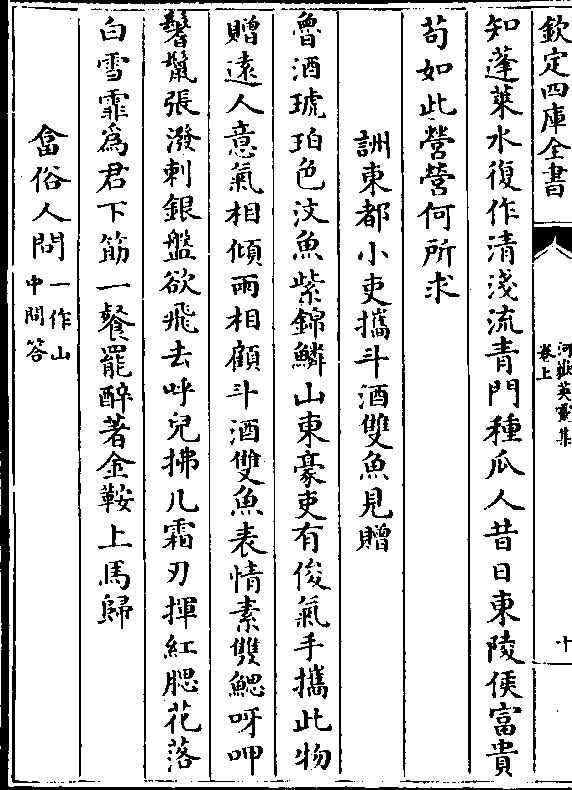 欽定四庫全書
河岳英靈集
卷上
十
知蓬萊水復作清淺流青門種瓜人昔日東陵侯富貴
苟如此營營何所求
詶東都小吏攜斗酒雙魚見贈
魯酒琥珀色汶魚紫錦鱗山東豪吏有俊氣手攜此物
贈遠人意氣相傾兩相顧斗酒雙魚表情素雙鰓呀呷
鬐鬣張潑剌銀盤欲飛去呼兒拂几霜刃揮紅腮花落
白雪霏為君下筯一餐罷醉著金鞍上馬歸
畣俗人問一作山
中問答